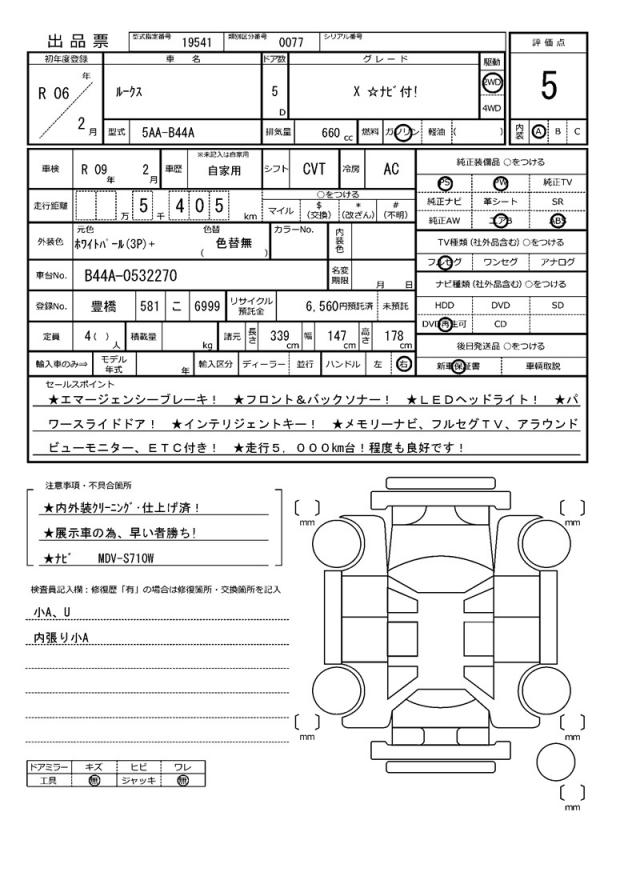 出品票 型式指定番号 19541 類別区分番号 0077 シリアル番号
評価点
5
内装 A B C
初年度登録 車名 ドア数 グレード 駆動
R 06 年 2 月 ルークス 5 D X ☆ナビ付! 2WD 4WD
型式 5AA-B44A 排気量 660 cc 燃料 ガソリン 軽油 ( )
車検 R 09 年 2 月 車歴 ※未記入は自家用 自家用 シフト CVT 冷房 AC
走行距離 万 5 千 4 0 5 km ○をつける マイル $(交換) *(改ざん) #(不明)
外装色 元色 ホワイトパール(3P)+ 色替 ( 色替無 ) カラーNo. 内装色
車台No. B44A-0532270 名変期限 月 日
登録No. 豊橋 581 こ 6999 リサイクル預託金 6,560円預託済 未預託
定員 4( ) 人 積載量 kg 諸元 長さ 339 cm 幅 147 cm 高さ 178 cm
輸入車のみ⇒ モデル年式 年 輸入区分 ディーラー 並行 ハンドル 左 右
純正装備品 ○をつける
PS PW 純正TV
純正ナビ 革シート SR
純正AW エアB ABS
TV種類 (社外品含む) ○をつける
フルセグ ワンセグ アナログ
ナビ種類 (社外品含む) ○をつける
HDD DVD SD
DVD再生可 CD
後日発送品 ○をつける
新車保証書 車輌取説
セールスポイント
★エマージェンシーブレーキ! ★フロント&バックソナー! ★LEDヘッドライト! ★パ
ワースライドドア! ★インテリジェントキー! ★メモリーナビ、フルセグTV、アラウンド
ビューモニター、ETC付き! ★走行5,000km台!程度も良好です!
注意事項・不具合箇所
★内外装クリーニング・仕上げ済!
★展示車の為、早い者勝ち!
★ナビ MDV-S710W
検査員記入欄:修復歴「有」の場合は修復箇所・交換箇所を記入
小A、U
内張り小A
ドアミラー キズ ヒビ ワレ
工具 無 ジャッキ 無
mm
mm
mm
mm
mm